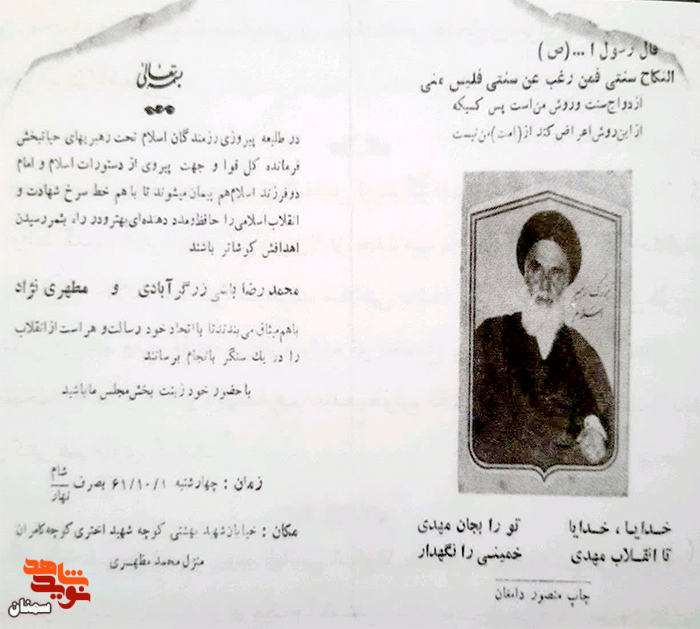 قال رسول ا... (ص)
النکاح سنتی فمن رغب عن سنتی فلیس منی
ازدواج سنت وروش من است پس کسیکه
از این روش اعراض کند از (امت) من نیست
بزرگ رهبر
اسلام
خدایا، خدایا تو را بجان مهدی
تا انقلاب مهدی خمینی را نگهدار
چاپ منصور دامغان
بسمه تعالی
در طلیعه پیروزی رزمندگان اسلام تحت رهبریهای حیاتبخش
فرمانده کل قوا و جهت پیروی از دستورات اسلام و امام
دو فرزند اسلام هم پیمان میشوند تا با هم خط سرخ شهادت و
انقلاب اسلامی را حافظ و مدد دهنده‌ای بهتر و در راه بثمر رسیدن
اهدافش کوشاتر باشند
محمد رضا باشی زرگرآبادی و مطهری نژاد
باهم میثاق می‌بندند تا با اتحاد خود رسالت و هراست از انقلاب
را در یك سنگر بانجام برسانند
با حضور خود زینت بخش مجلس ما باشید
زمان : چهارشنبه ۶۱/۱۰/۱ بصرف شام
نهار
مکان : خیابان شهید بهشتی کوچه شهید اختری کوچه کامران
منزل محمد مطهری
شاهد
نوید
سمنان